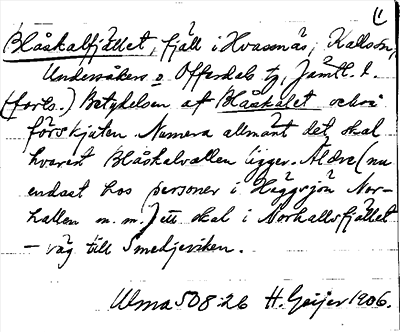 (1
Blåskalfjället, fjäll i Hvassnäs, Kallsdn,
Undersåkers o Offerdals tg, Jämtl. l.
(forts.) Betydelsen af Blåskalet också
förskjuten Numera allmänt det skal
hvarest Blåskalvallen ligger. Äldre (nu
endast hos personer i Häggsjön Nor-
hallen m. m.) ett skal i Norhallsfjället
– väg till Smedjeviken.
Ulma 508:26 H. Geijer 1906.